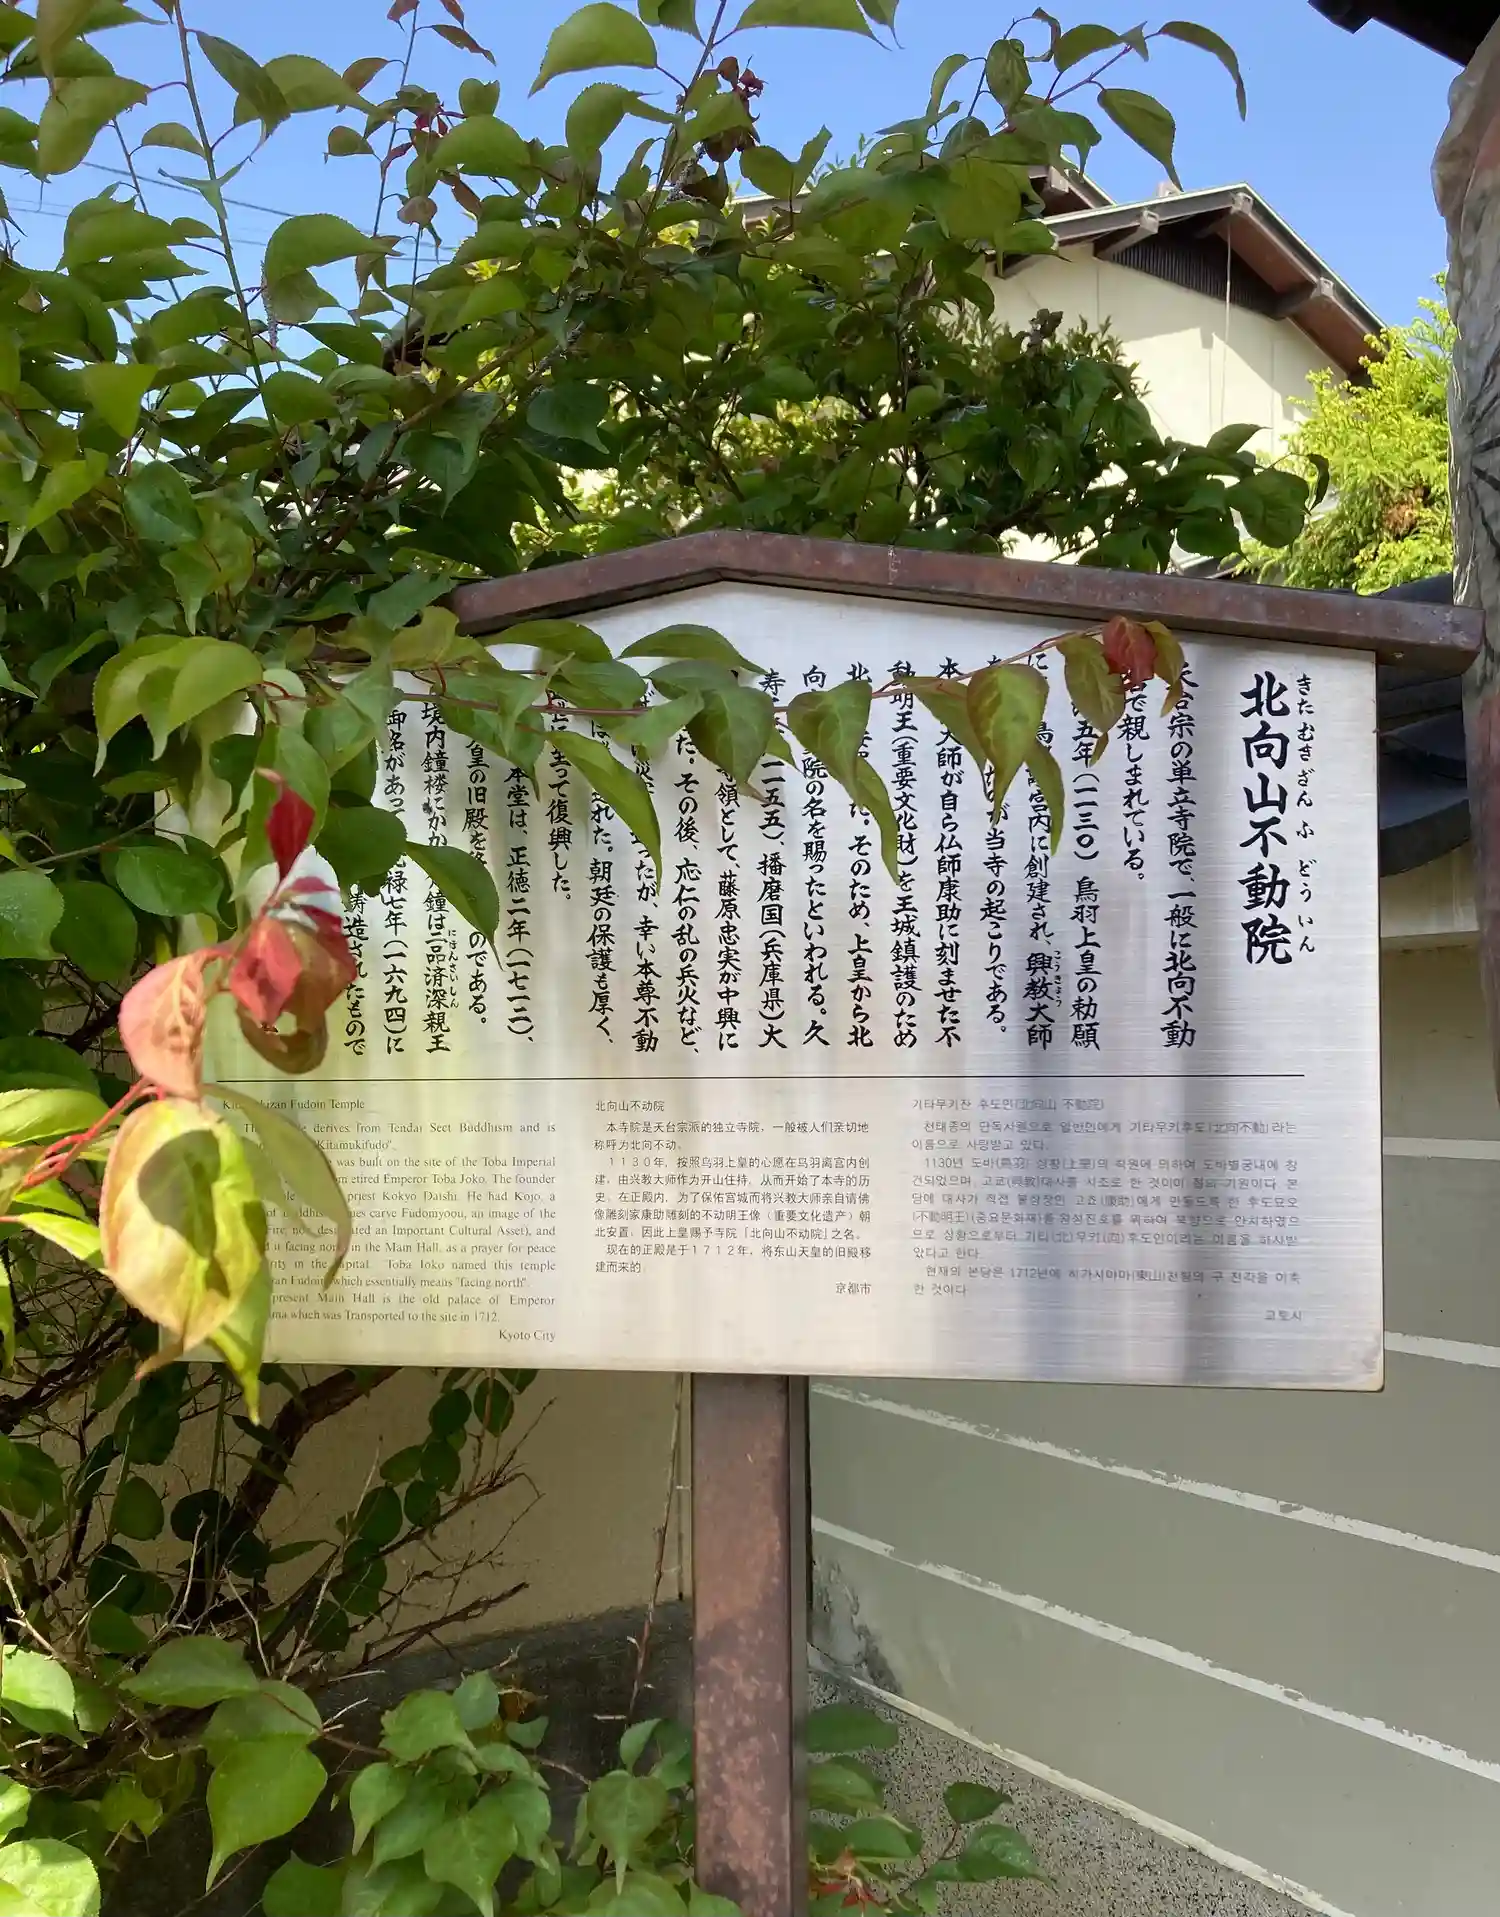 きたむきざんふどういん
北向山不動院
天台宗の単立寺院で、一般に北向不動
で親しまれている。
五年（一一三〇）鳥羽上皇の勅願
に 宮内に創建され、興教大師
こうきょう
が当寺の起こりである。
本 大師が自ら仏師康助に刻ませた不
動明王（重要文化財）を王城鎮護のため
北 た。そのため、上皇から北
向 院の名を賜ったといわれる。久
寿 （一一五五）、播磨国（兵庫県）大
領として、藤原忠実が中興に
た。その後、応仁の乱の兵火など、
ったが、幸い本尊不動
れた。朝廷の保護も厚く、
に至って復興した。
本堂は、正徳二年（一七一二）、
皇の旧殿を のである。
境内鐘楼にか 鐘は二品済深親王
にほんさいしん
御名があって 禄七年（一六九四）に
鋳造されたもので
Kitamukizan Fudoin Temple
derives from Tendai Sect Buddhism and is
"Kitamukifudo".
was built on the site of the Toba Imperial
etired Emperor Toba Joko. The founder
priest Kokyo Daishi. He had Kojo, a
of Buddhist carve Fudomyoou, an image of the
Fire, now designated an Important Cultural Asset), and
it facing north in the Main Hall, as a prayer for peace
in the capital. Toba Joko named this temple
Fudoin, which essentially means "facing north".
present Main Hall is the old palace of Emperor
which was Transported to the site in 1712.
Kyoto City
北向山不动院
本寺院是天台宗派的独立寺院，一般被人们亲切地
称呼为北向不动。
１１３０年，按照鸟羽上皇的心愿在鸟羽离宫内创
建，由兴教大师作为开山住持，从而开始了本寺的历
史。在正殿内，为了保佑宫城而将兴教大师亲自请佛
像雕刻家康助雕刻的不动明王像（重要文化遗产）朝
北安置，因此上皇赐予寺院「北向山不动院」之名。
现在的正殿是于１７１２年，将东山天皇的旧殿移
建而来的。
京都市
기타무키잔 후도인(北向山 不動院)
천태종의 단독사원으로 일반인에게 기타무키후도(北向不動)라는
이름으로 사랑받고 있다.
1130년 도바(鳥羽) 상황(上皇)의 칙원에 의하여 도바별궁내에 창
건되었으며, 고쿄(興敎)대사를 시조로 한 것이이 절의 기원이다. 본
당에 대사가 직접 불상장인 고죠(康助)에게 만들도록 한 후도묘오
(不動明王)(중요문화재)를 왕성진호를 위하여 북향으로 안치하였으
므로 상황으로부터 기타(北)무키(向)후도인이라는 이름을 하사받
았다고 한다.
현재의 본당은 1712년에 히가시야마(東山)천황의 구 전각을 이축
한 것이다.
교토시